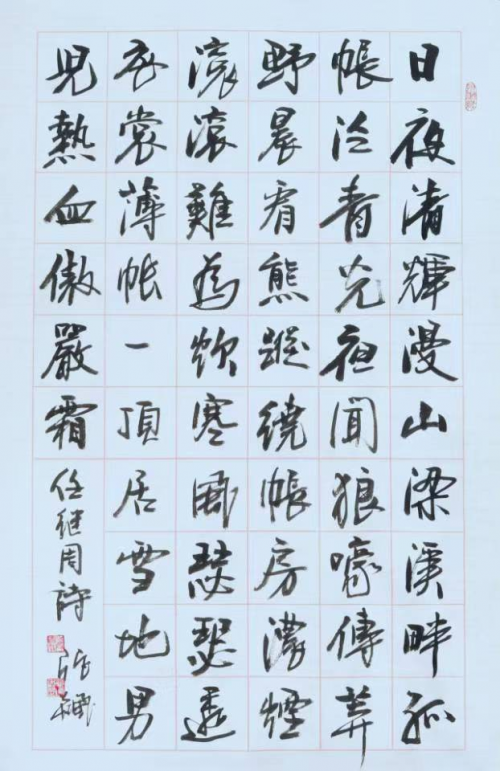 日夜清輝漫山梁溪畔孤
帳泛青光夜聞狼嚎傳莽
野晨看熊蹤繞帳房濃煙
滾滾難為炊寒風瑟瑟透
衣裳薄帐一頂居雪地男
兒熱血傲嚴霜
任继周詩